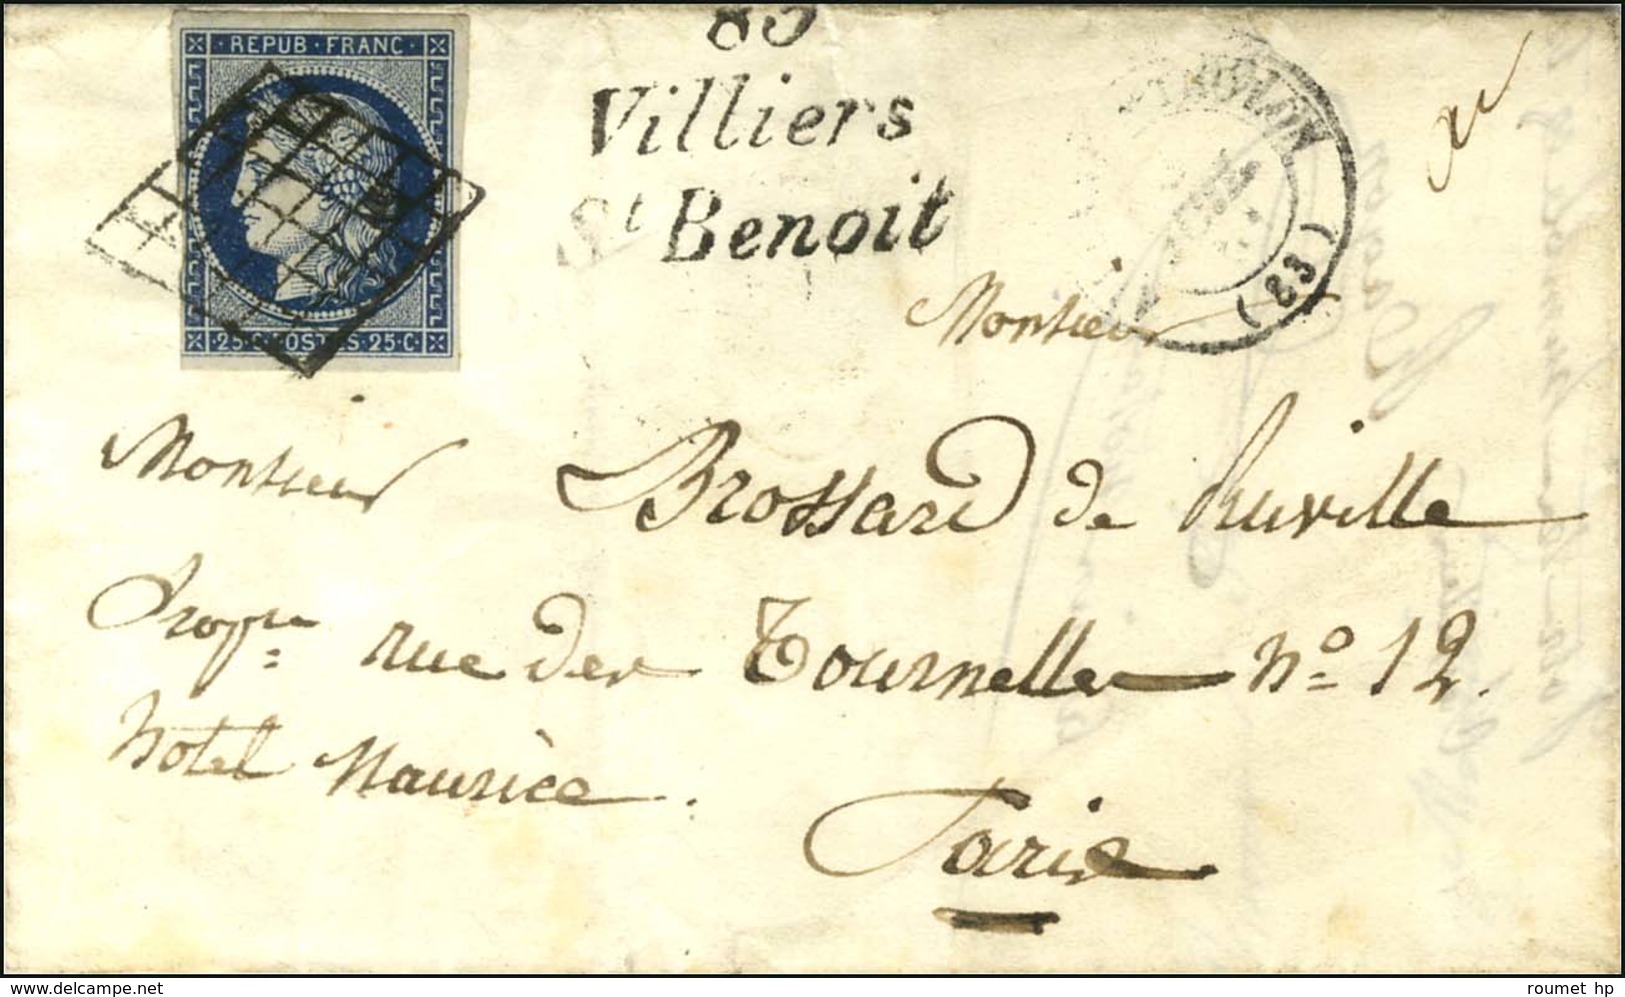 REPUB · FRANC ·
25·C·POSTES·25·C
83
Villiers
St Benoit
(23)
au
Monsieur
Monsieur Brossard de Ruville
Propre rue des Tournelles No 12.
hotel Maurice.
Paris
roumet hp